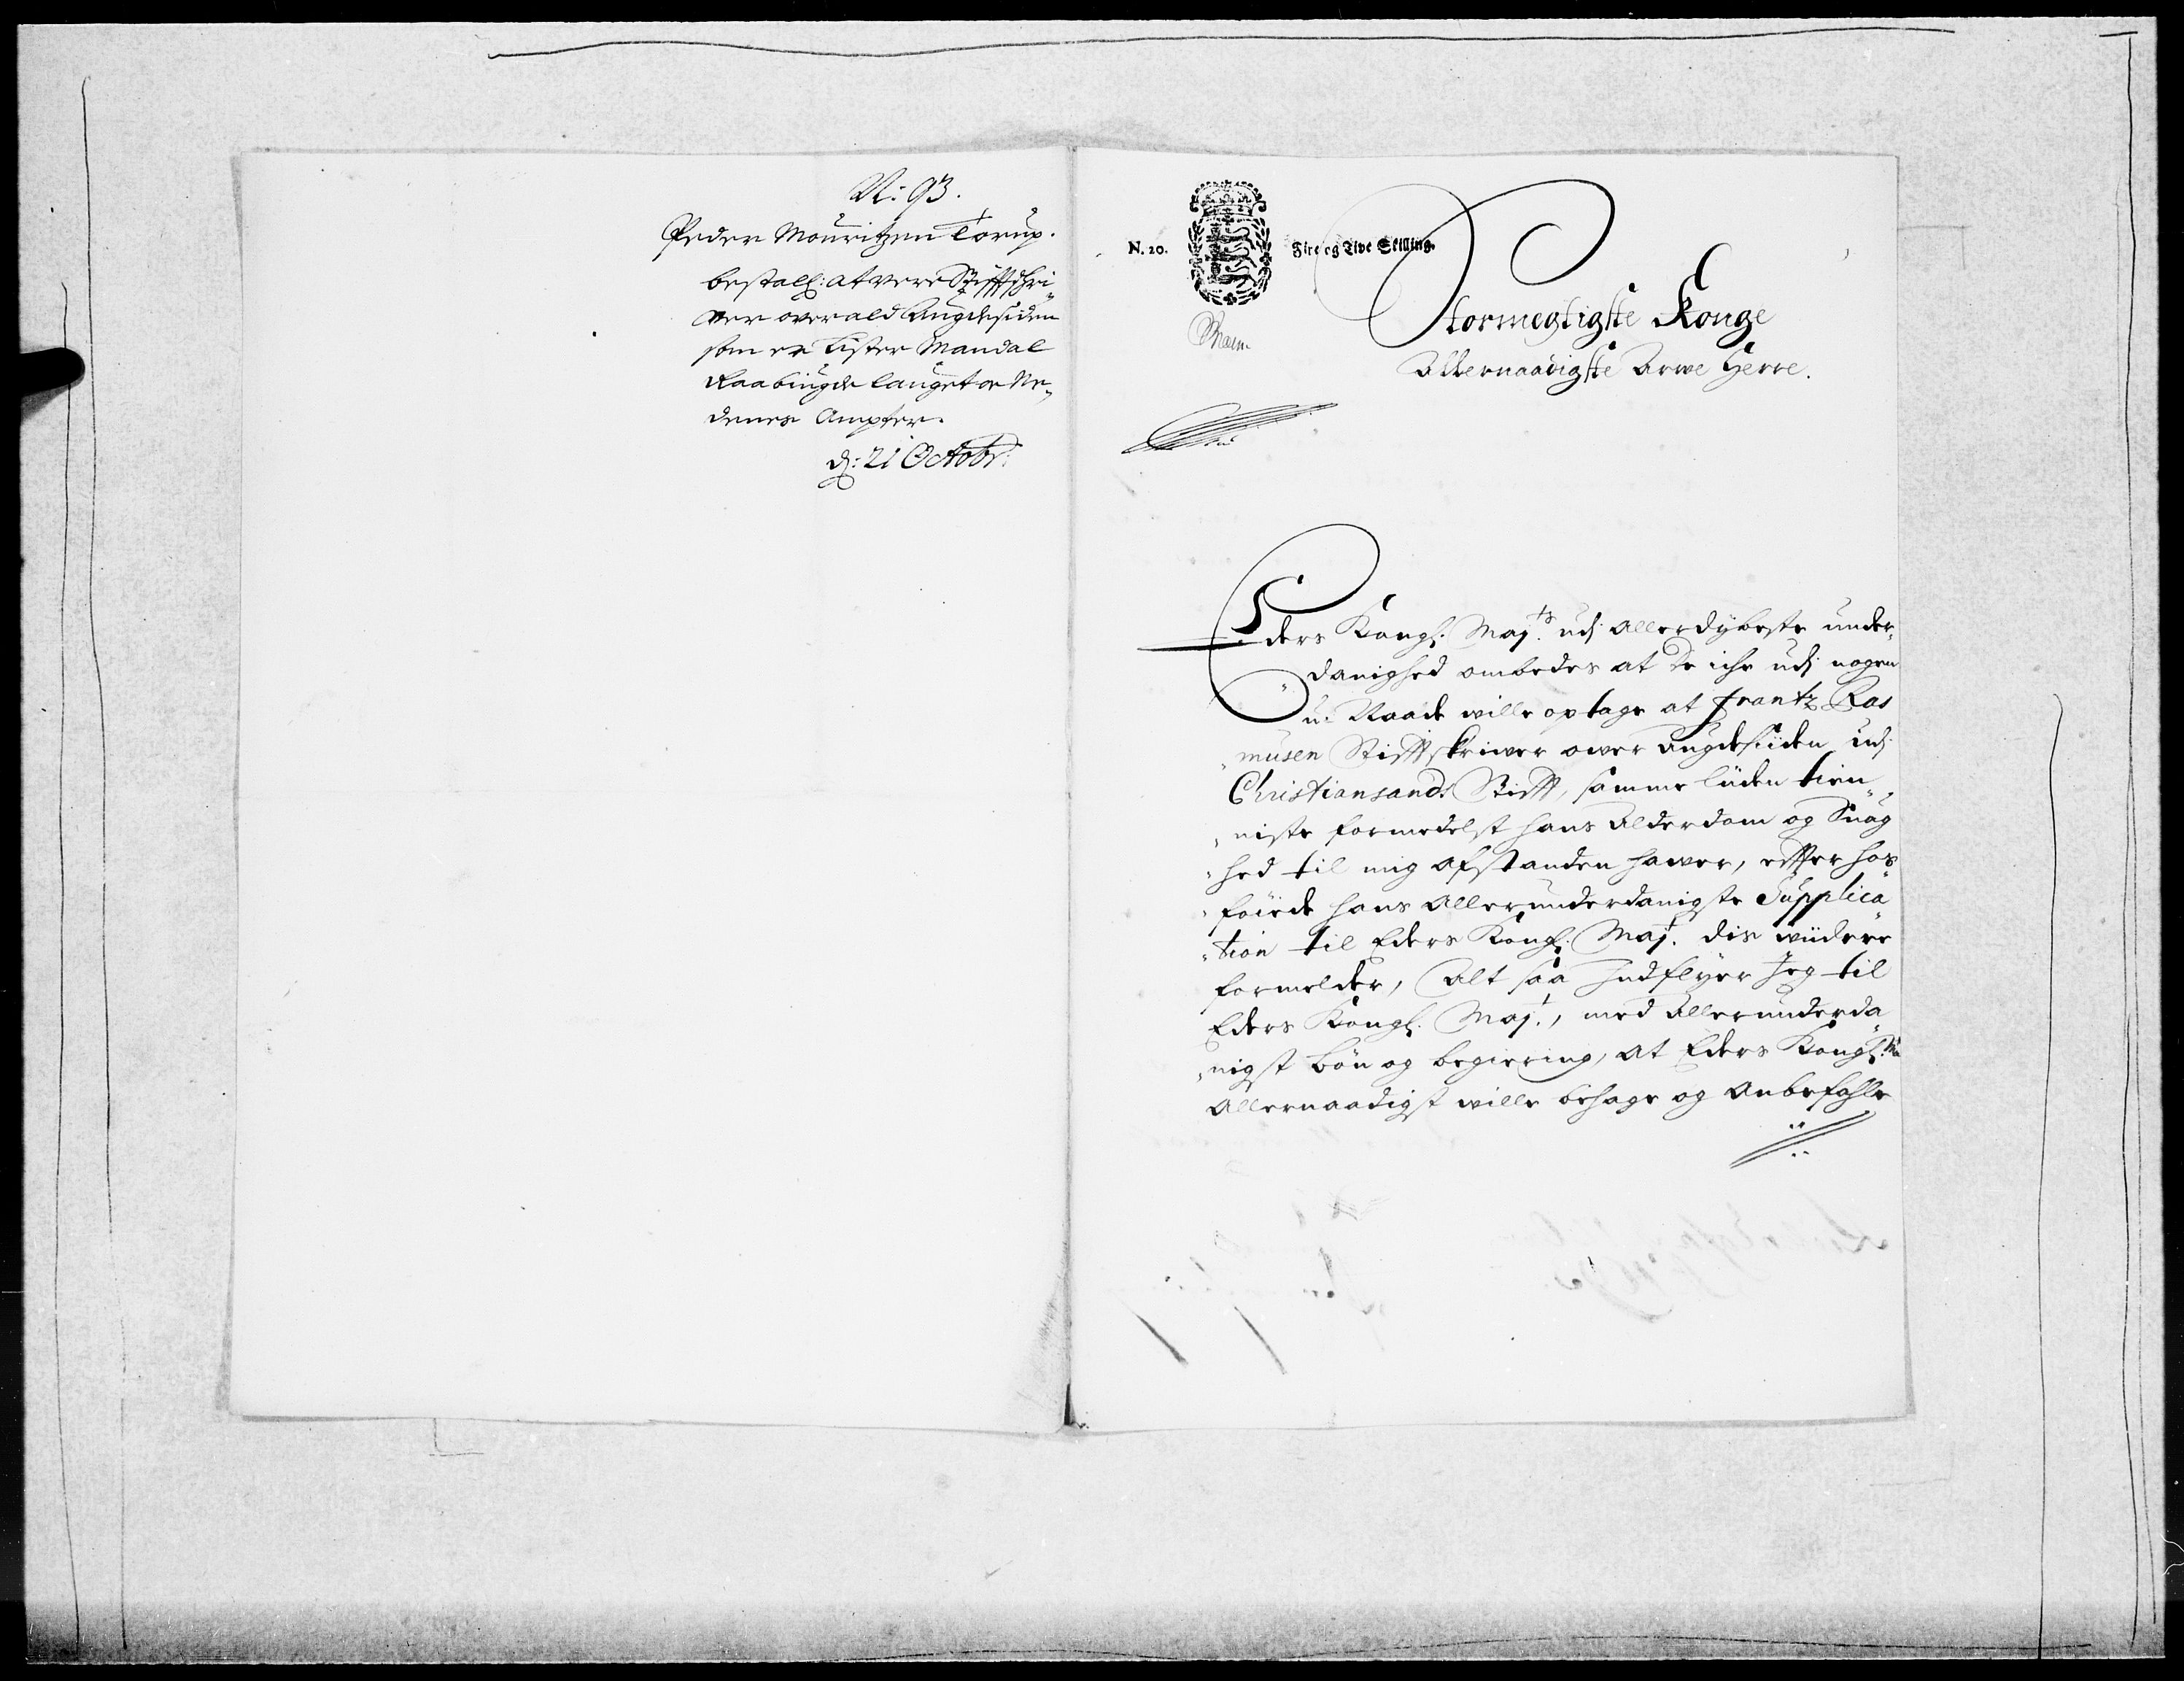 N: 93.
Peder Mouritzen Torup.
bestall: at vere Stifftschri¬
ver over ald Augdesiden
som er Lister Mandal
Raabiugde lauget oc Ne¬
denes Ampter.
d: 21 Octobr:
N. 20.
Fire og Tive Skilling.
Stormegtigste Konge
Allernaadigste Arwe Herre.
Eders Kongl: Majts udj allerdybeste under¬
danighed ombedes at De iche udj nogen
u-Naade wille optage at Frantz Ras
musen Stifftskriwer ower Augdesiiden udj
Christiansands Stifft, samme liiden tien¬
niste formedelst hans Alderdom og Suag
hed til mig afstanden hawer, effter hos
föiede hans allerunderdanigste Supplica
tion til Eders Kongl: Majt. dis wiidere
formelder, Alt saa Indflyer Jeg til
Eders Kongl: Majt., med allerunderda
nigst bön og begiering, at Eders Kongl: Ma
allernaadigst wille behage og anbefahle